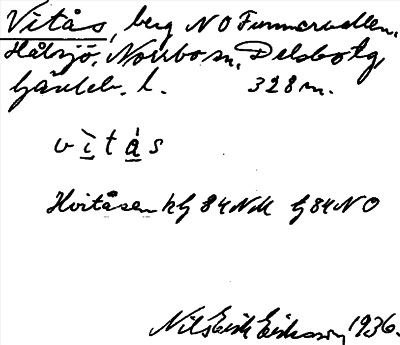 Vitås, berg NO Funnarvallen,
Håsjö, Norrbo sn, Delsbo tg,
Gävleb. l. 328 m.
v ì t á s
Hvitåsen kg 84 NV lj 84 NO
Nils Erik Eriksson 1936.